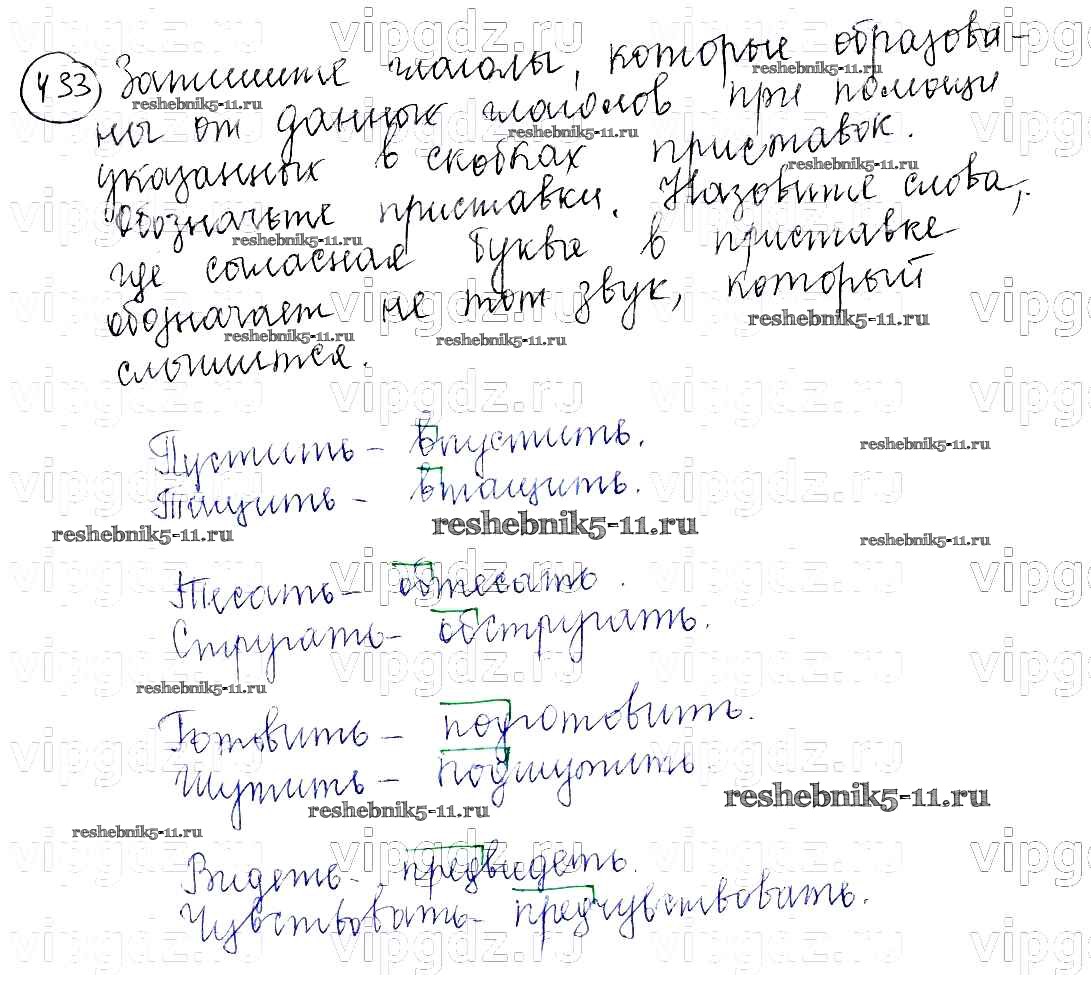 433 Запишите глаголы, которые образова-
ны от данных глаголов при помощи
указанных в скобках приставок.
Обозначьте приставки. Назовите слова,
где согласная буква в приставке
обозначает не тот звук, который
слышится.
Пустить – впустить.
Тащить – втащить.
Тесать – обтесать.
Стругать – обстругать.
Готовить – подготовить.
Шутить – подшутить.
Видеть – предвидеть.
Чувствовать – предчувствовать.
vipgdz.ru
reshebnik5-11.ru